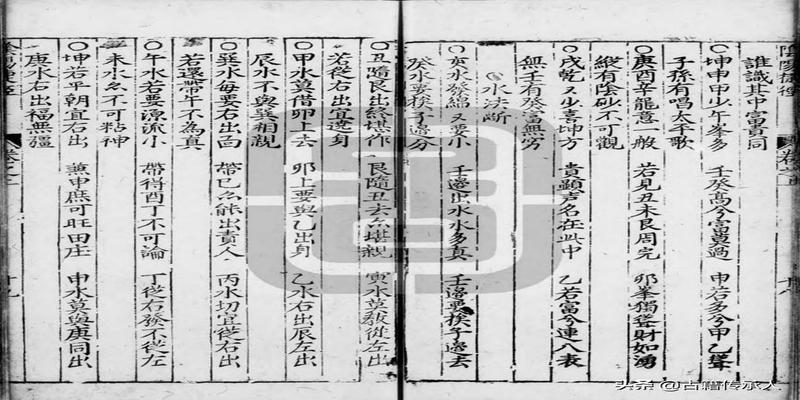 誰識其中富貴同
○坤申甲少午峯多 壬癸高兮富莫過 申若多兮甲乙聳
子孫有唱太平歌
○庚酉辛龍意一般 若見丑未艮周完 卯峯獨聳財如湧
縱有陰砂不可觀
○戌乾又少喜坤方 貴顯声名在此中 乙若富兮連八表
無壬有癸富無穷
○水法断
○亥水發綿又要小 壬邊出水水多真 壬邊更候子邊去
癸水要候子邊分
○丑隨艮出終堪作 艮隨丑去亦堪親 寅水莫教從左出
若從右出宜遶身
○甲水莫借卯上去 卯上要與乙出身 乙水右出辰左出
辰水不與巽相親
○巽水每要右出面 帶巳亦能出贵人 丙水切宜從右出
若還帶午不為真
○午水若要源流小 帶得酉丁不可論 丁從右發不從左
未水亦不可粘神
○坤若平朝宜右出 兼申庶可旺田庄 申水莫與庚同出
庚水右出福無疆
卷之
十九
头条 @古籍传承人